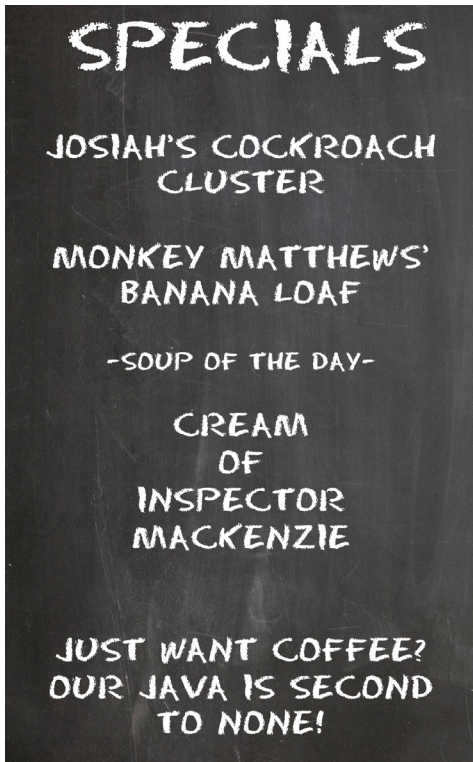 SPECIALS
JOSIAH'S COCKROACH
CLUSTER
MONKEY MATTHEWS'
BANANA LOAF
-SOUP OF THE DAY-
CREAM
OF
INSPECTOR
MACKENZIE
JUST WANT COFFEE?
OUR JAVA IS SECOND
TO NONE!